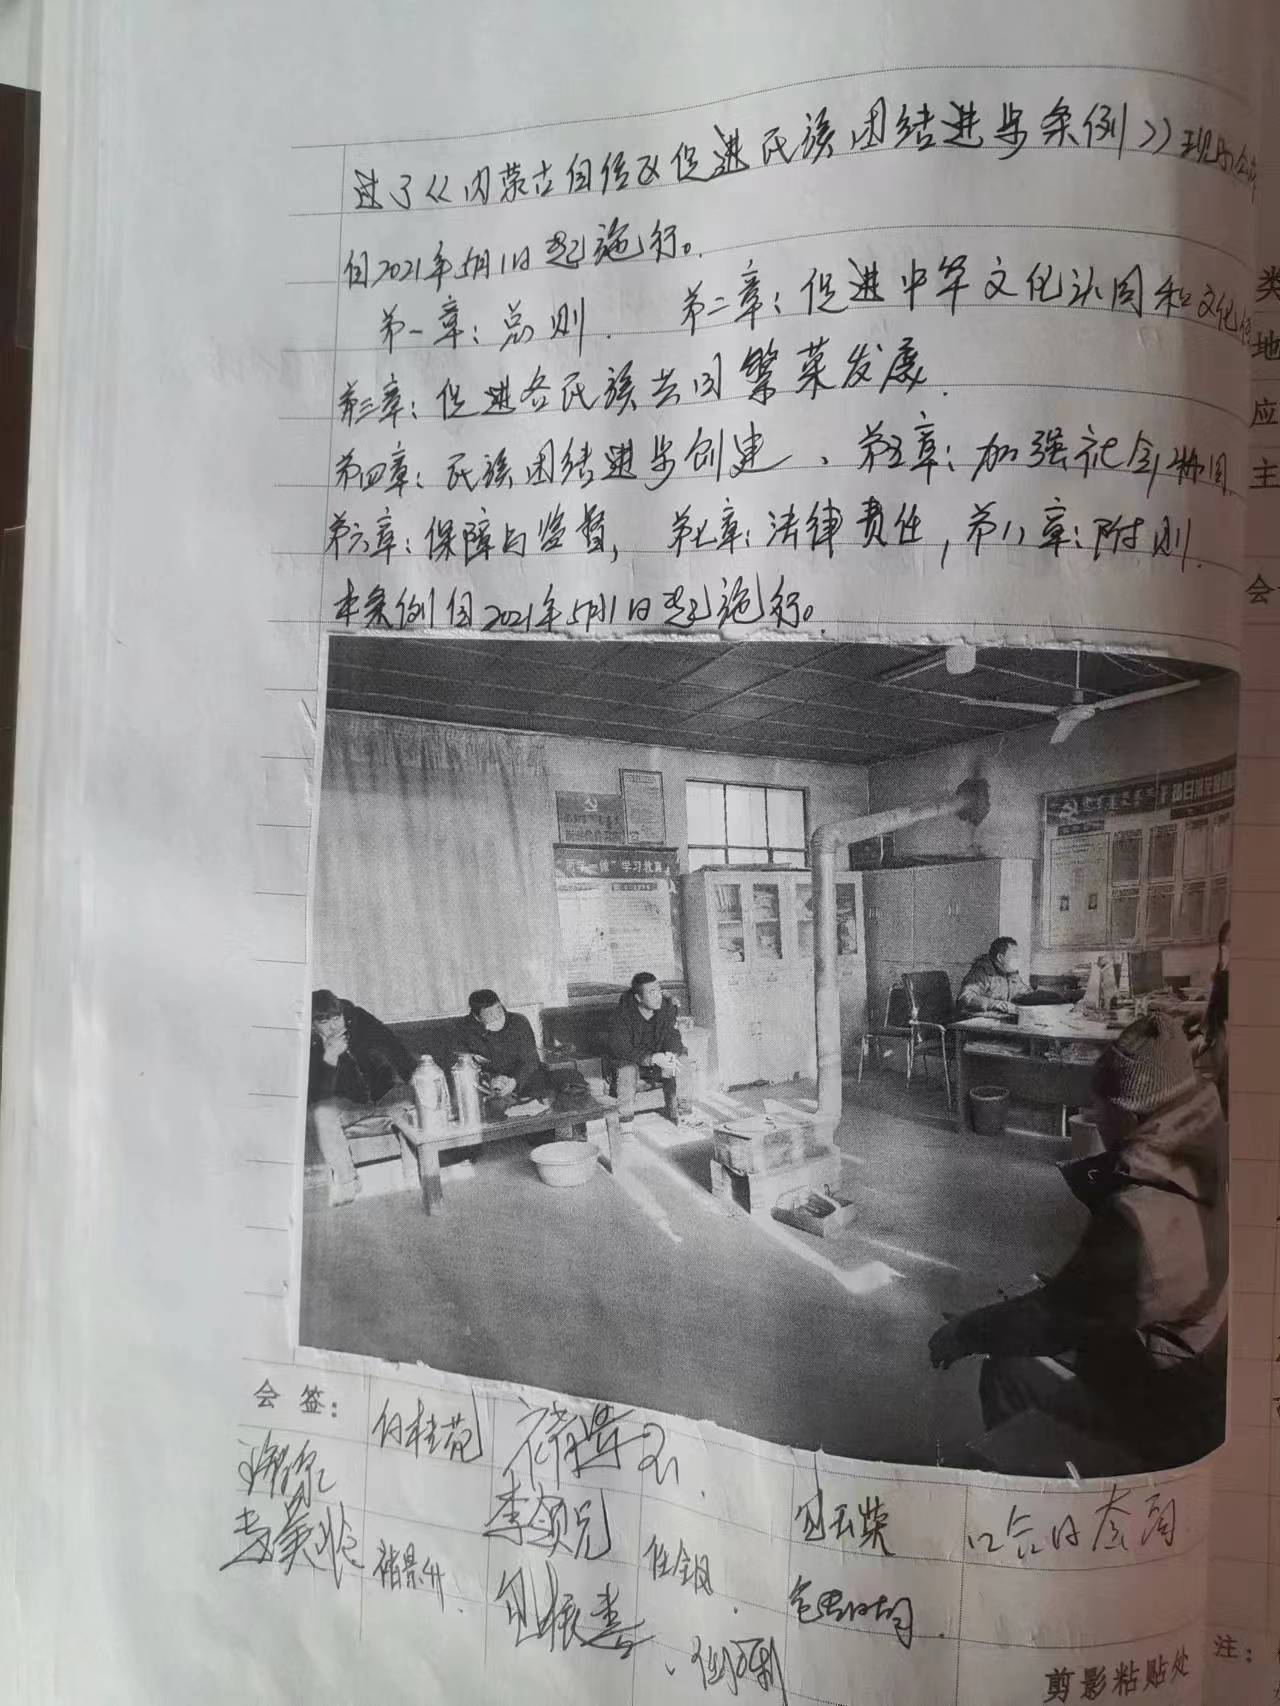 过了《内蒙古自治区促进民族团结进步条例》现予公布
自2021年5月1日起施行。
第一章：总则. 第二章：促进中华文化认同和文化
第三章：促进各民族共同繁荣发展.
第四章：民族团结进步创建、第五章：加强社会协同
第六章：保障与监督, 第七章：法律责任,第八章：附则.
本条例自2021年5月1日起施行。
"两学一做"学习教育
会签：
白桂苑
李领兄
褚景升.
任金凤.
包玉荣
包振善
剪影粘贴处
注：
类
地
应
主
会